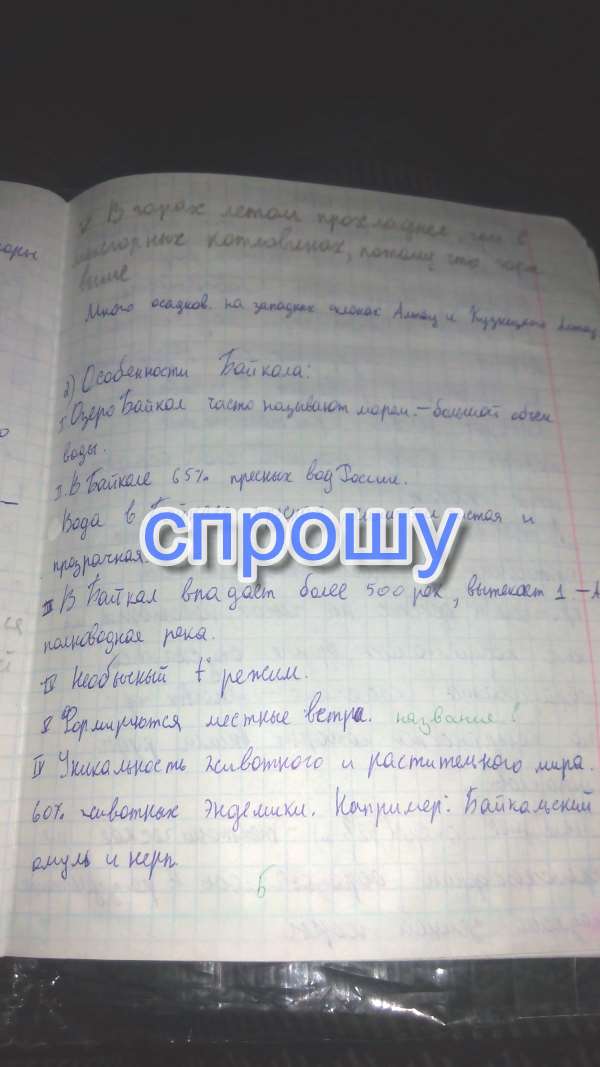 V В горах летом прохладнее, чем в
межгорных котловинах, потому что горы
выше
Много осадков. на западных склонах Алтая и Кузнецкого Алатау
2) Особенности Байкала:
I Озеро Байкал часто называют морем. – большой объем
воды.
II. В Байкале 65% пресных вод России.
Вода в
спрошу
и
прозрачная.
III В Байкал впадает более 500 рек, вытекает 1 –
полноводная река.
IV Необычный t° режим.
V Формируются местные ветра. название!
IV Уникальность животного и растительного мира.
60% животных эндемики. Например: Байкальский
омуль и нерп.
5